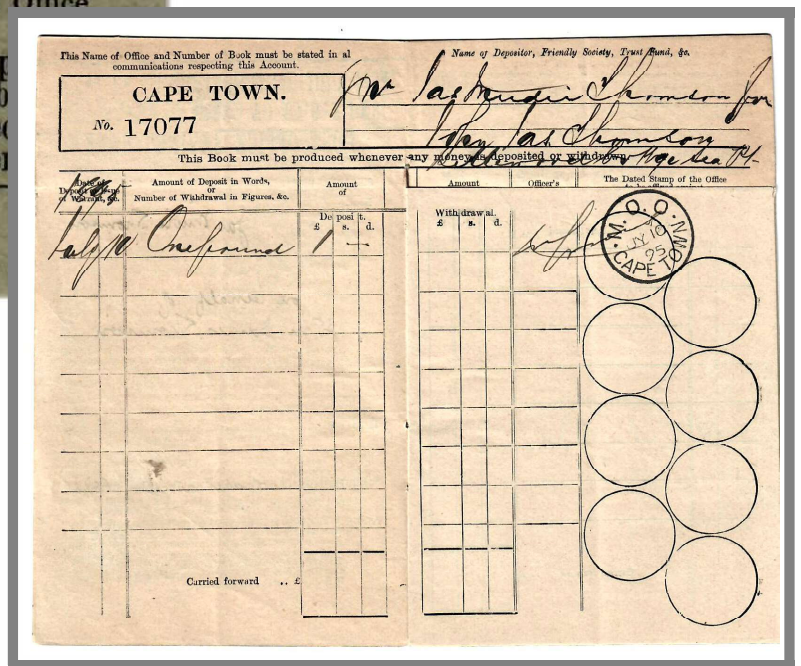 Office
This Name of Office and Number of Book must be stated in al
communications respecting this Account.
CAPE TOWN.
No. 17077
Name of Depositor, Friendly Society, Trust Fund, &c.
Jas Thomson
John Jas Thomson
Sea Pt
This Book must be produced whenever any money is deposited or withdrawn.
Date of
Deposit or Issue
of Warrant, &c.
Amount of Deposit in Words,
or
Number of Withdrawal in Figures, &c.
Amount
of
Deposit.
£ s. d.
Amount
Withdrawal.
£ s. d.
Officer's
The Dated Stamp of the Office
July 10 One pound 1 —
M.O.O.
JY 10
95
CAPE TOWN
Carried forward .. £